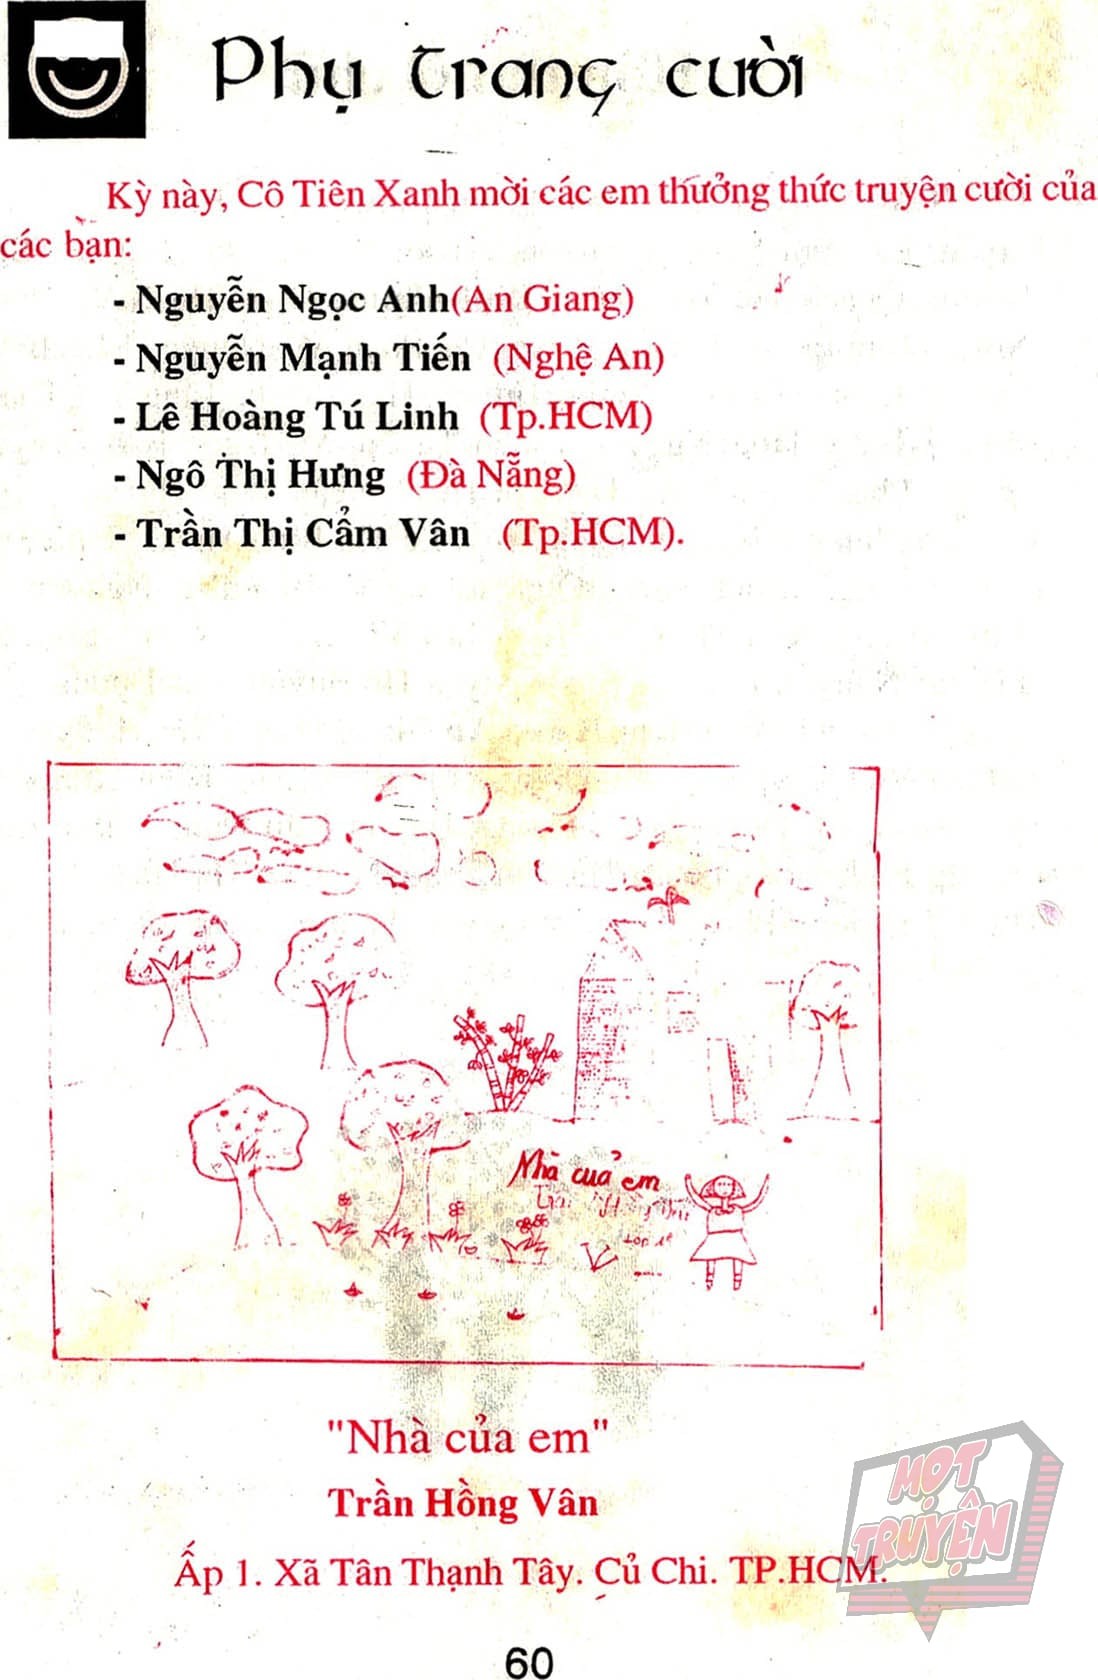 Phụ trang cười
Kỳ này, Cô Tiên Xanh mời các em thưởng thức truyện cười của
các bạn:
- Nguyễn Ngọc Anh(An Giang)
- Nguyễn Mạnh Tiến (Nghệ An)
- Lê Hoàng Tú Linh (Tp.HCM)
- Ngô Thị Hưng (Đà Nẵng)
- Trần Thị Cẩm Vân (Tp.HCM).
Nhà của em
"Nhà của em"
Trần Hồng Vân
Ấp 1. Xã Tân Thạnh Tây. Củ Chi. TP.HCM.
MỌT
TRUYỆN
60